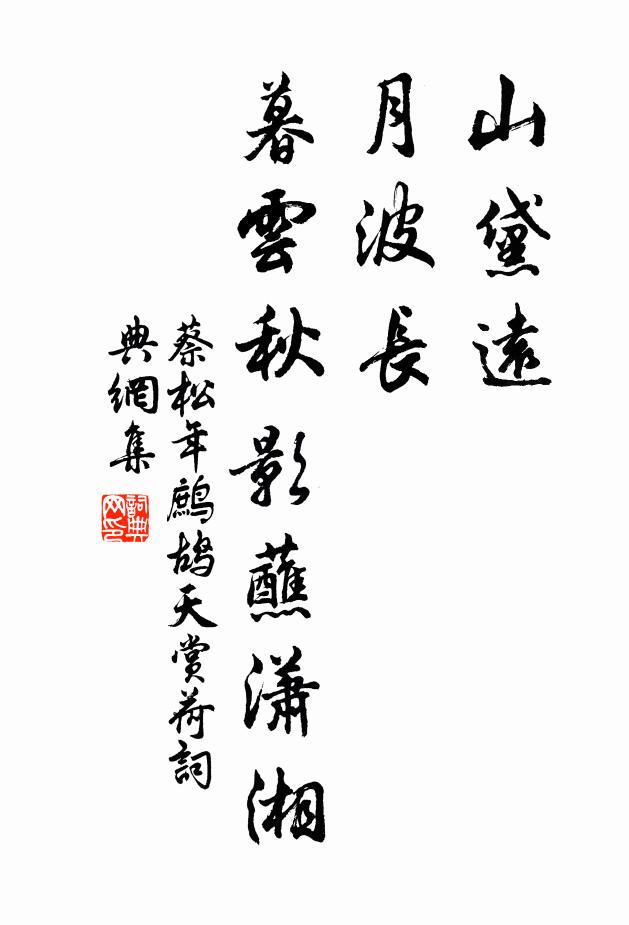 山黛遠
月波長
暮雲秋影蘸瀟湘
蔡松年鷓鴣天賞荷詞
典網集
詞典网印